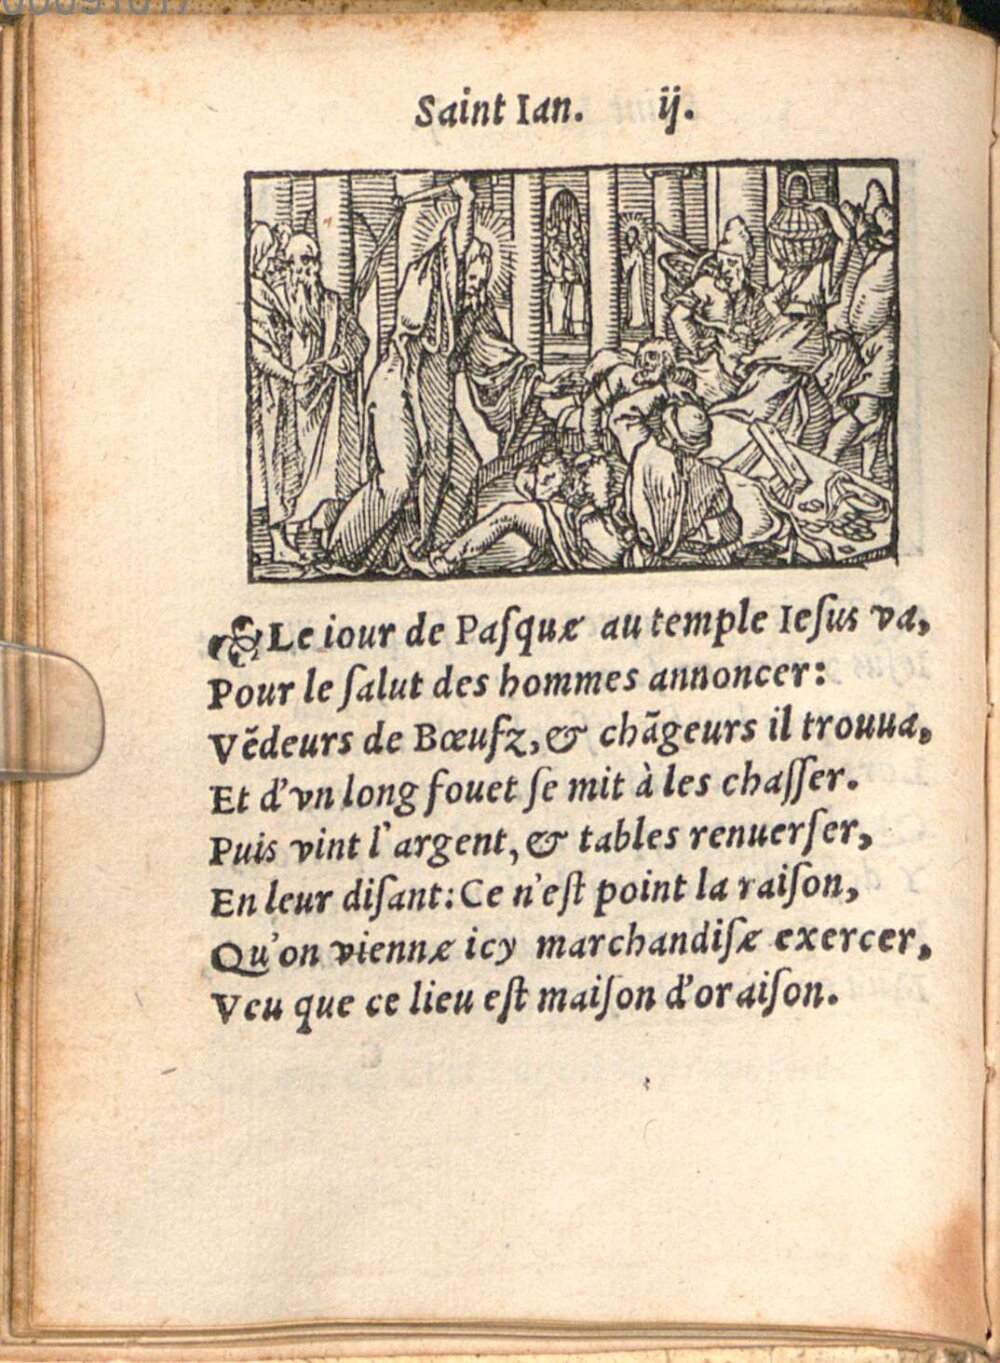 Saint Ian. ij.
Le iour de Paſquæ au temple Ieſus va,
Pour le ſalut des hommes annoncer:
Vẽdeurs de Bœufz, & chãgeurs il trouua,
Et d'vn long fouet ſe mit à les chaſſer.
Puis vint l'argent, & tables renuerſer,
En leur diſant: Ce n'eſt point la raiſon,
Qu'on viennæ icy marchandiſæ exercer,
Veu que ce lieu eſt maiſon d'oraiſon.